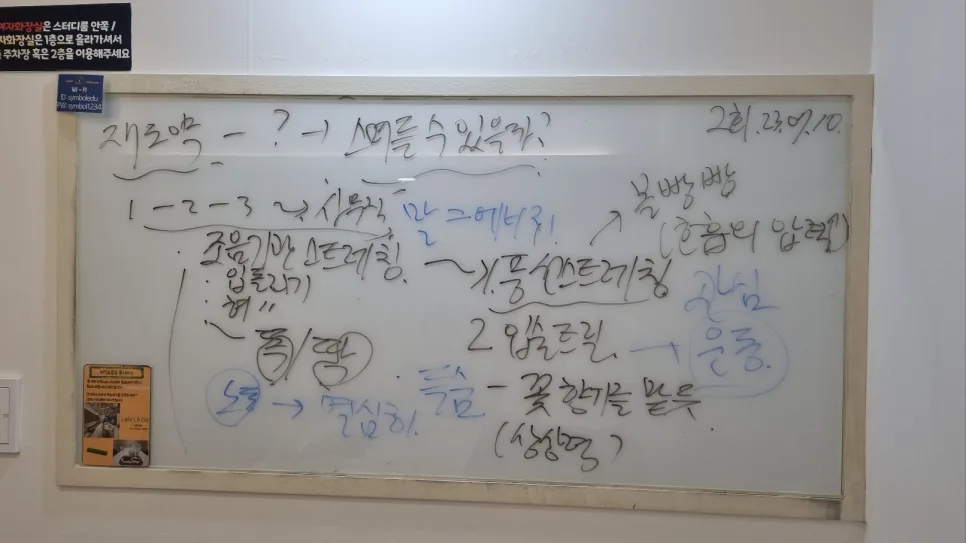 여자화장실은 스터디룸 안쪽 /
자화장실은 1층으로 올라가셔서
주차장 혹은 2층을 이용해주세요
Wi-Fi
ID:symboledu
PW:symbol1234
재도약 - ? → 스며들 수 있을까?
2회. 23.07.10.
1-2-3 시무식 말 그 에너지.
볼빵빵
(호흡의 압력)
조음기관 스트레칭.
1.풍선스트레칭
· 입돌리기
· 혀 〃
관심
톡/딱
2 입술트릴. → 운동.
노력 → 열심히.
· 특습 - 꽃 향기를 맡듯
(상상력)